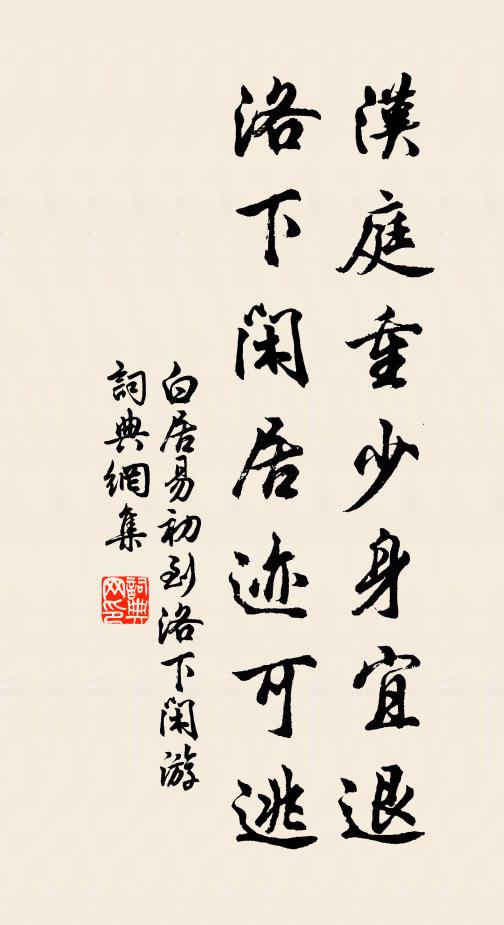 漢庭重少身宜退
洛下閑居迹可逃
白居易初到洛下閑游
詞典網集
詞典
网印